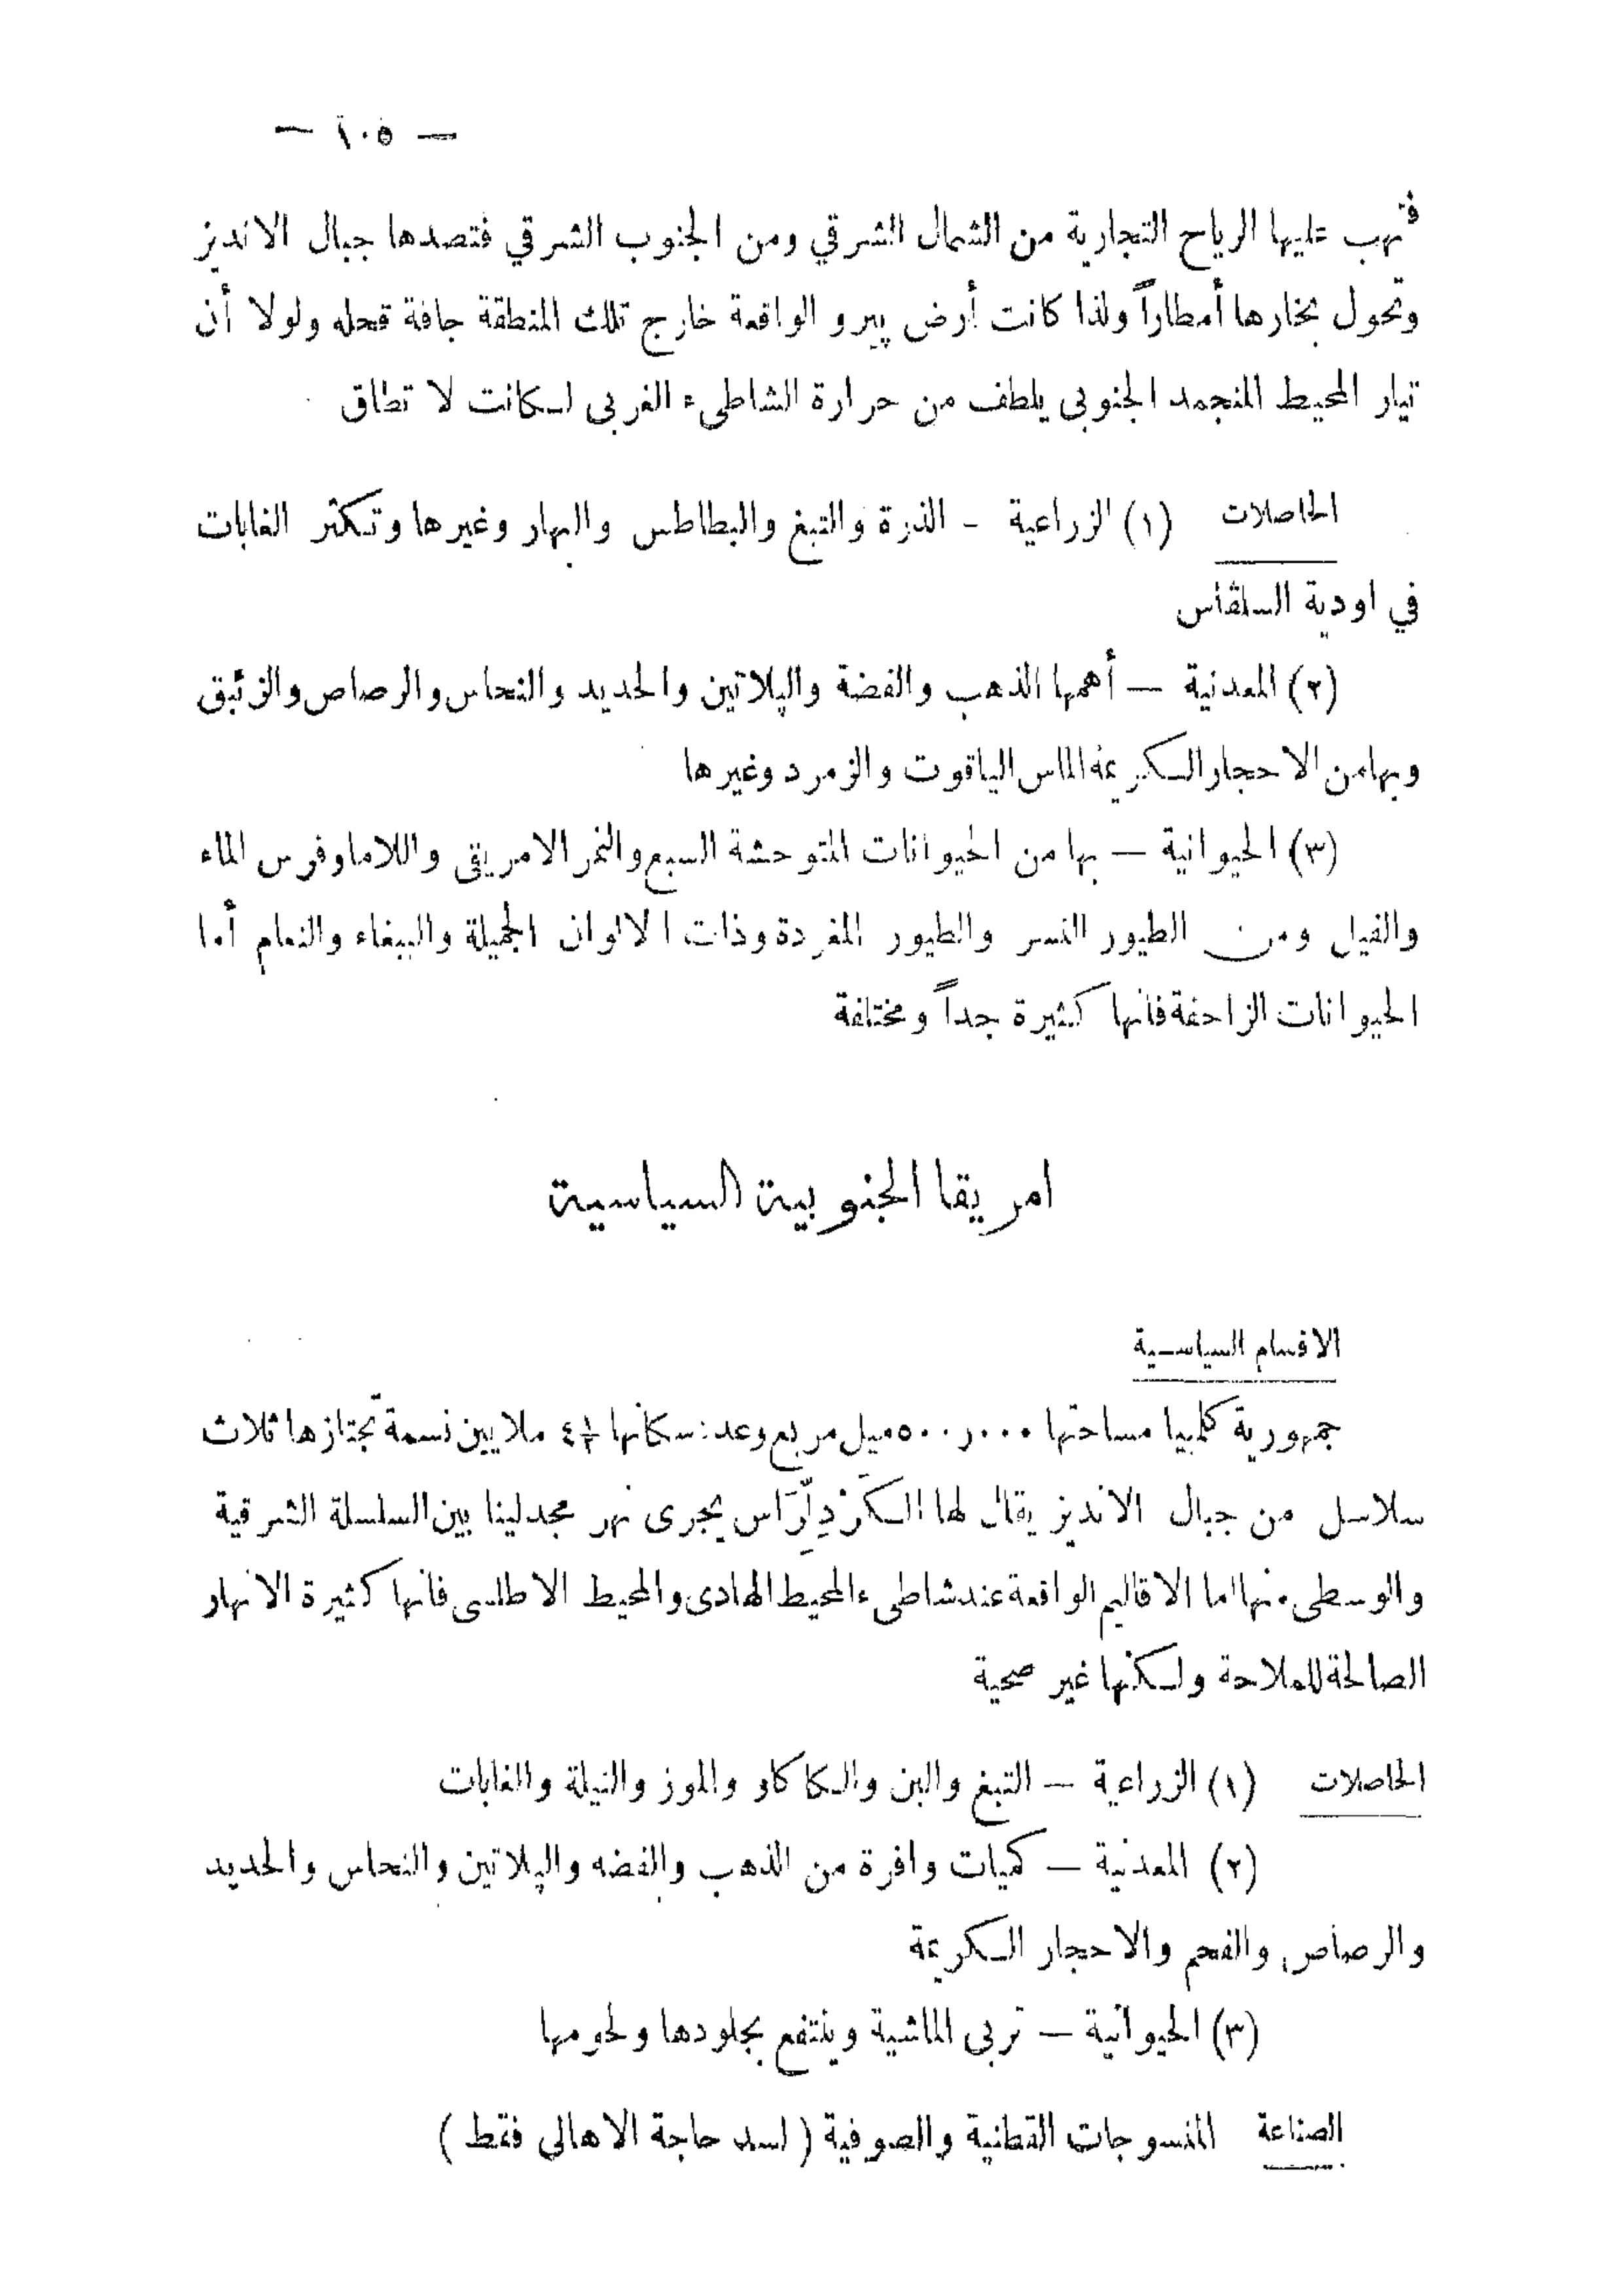 — ١٠٥ —
فتهب عليها الرياح التجارية من الشمال الشرقي ومن الجنوب الشرقي فتصدها جبال الانديز
وتحول بخارها أمطاراً ولذا كانت أرض پيرو الواقعة خارج تلك المنطقة جافة قحله ولولا أن
تيار المحيط المنجمد الجنوبى يلطف من حرارة الشاطىء الغربى لكانت لا تطاق
الحاصلات (١) الزراعية - الذرة والتبغ والبطاطس والبهار وغيرها وتكثر الغابات
في اودية السلڤاس
(٢) المعدنية — أهمها الذهب والفضة والپلاتين والحديد والنحاس والرصاص والزئبق
وبها من الاحجار الكريمة الماس الياقوت والزمرد وغيرها
(٣) الحيوانية — بها من الحيوانات المتوحشة السبع والنمر الامريقى واللاما وفرس الماء
والفيل ومن الطيور النسر والطيور المغردة وذات الالوان الجميلة والببغاء والنعام أما
الحيوانات الزاحفة فانها كثيرة جداً ومختلفة
امريقا الجنوبية السياسية
الاقسام السياسية
جمهورية كلمبيا مساحتها ٥٠٠٫٠٠٠ ميل مربع وعدد سكانها ٤½ ملايين نسمة تجتازها ثلاث
سلاسل من جبال الانديز يقال لها الكَرْدِلِّرَاس يجرى نهر مجدلينا بين السلسلة الشرقية
والوسطى منها اما الاقاليم الواقعة عند شاطىء المحيط الهادى والمحيط الاطلسى فانها كثيرة الانهار
الصالحة للملاحة ولكنها غير صحية
الحاصلات (١) الزراعية — التبغ والبن والكاكاو والموز والنيلة والغابات
(٢) المعدنية — كميات وافرة من الذهب والفضه والپلاتين والنحاس والحديد
والرصاص والفحم والاحجار الكريمة
(٣) الحيوانية — تربى الماشية وينتفع بجلودها ولحومها
الصناعة المنسوجات القطنية والصوفية ( لسد حاجة الاهالى فقط )